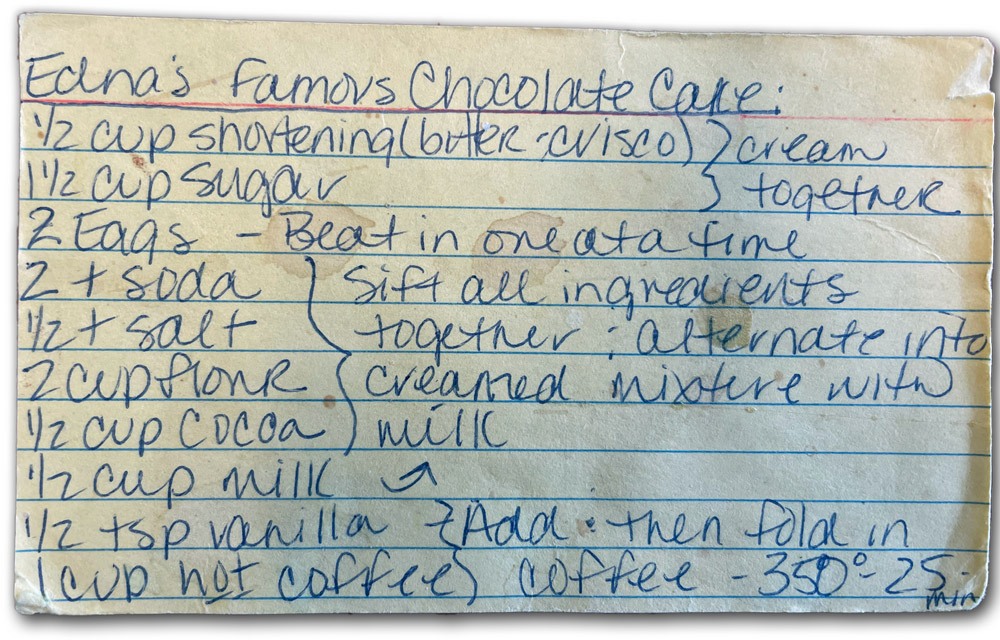 Edna's Famous Chocolate Cake:
1/2 cup shortening (butter - crisco) } cream
1 1/2 cup sugar } together
2 Eggs - Beat in one at a time
2 t soda } Sift all ingredients
1/2 t salt together : alternate into
2 cup flour creamed mixture with
1/2 cup cocoa } milk
1/2 cup milk ⤴
1/2 tsp vanilla } Add - then fold in
1 cup hot coffee } coffee - 350° - 25-
min